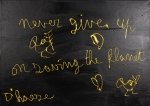 never give up
on saving the Planet